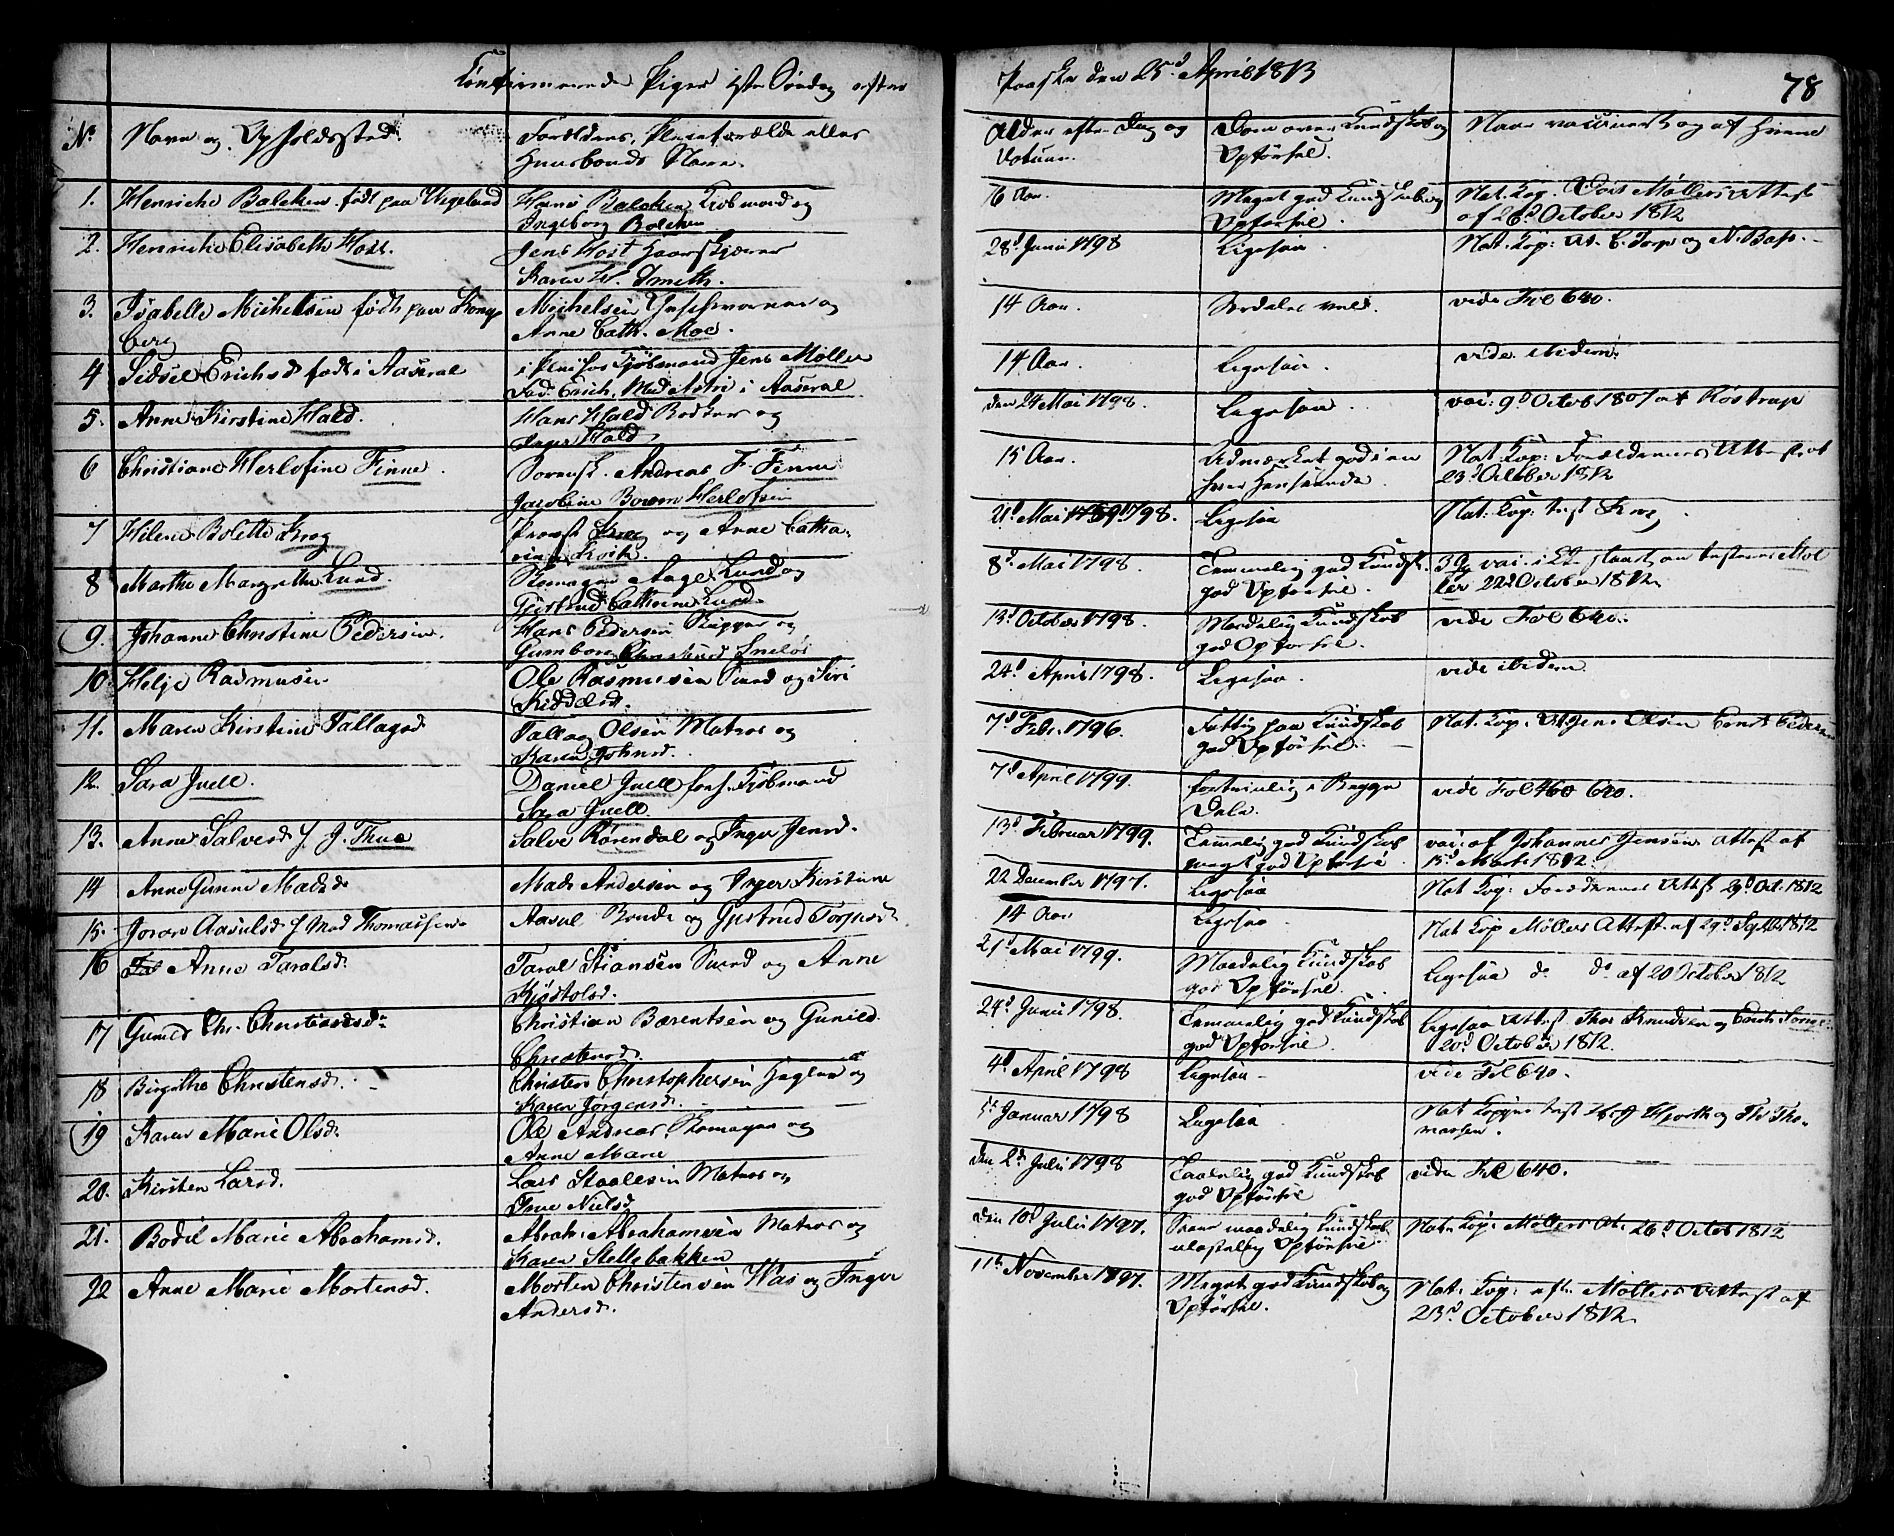 Confirmerede Piger 1ste Søndag efter Paaske den 25d April 1813
78
No Navn og Opholdssted.
Forældrens, Pleieforældre eller
Huusbonds Navn.
Alder efter Dag og
Datum.
Dom over Kundskab og
Opførsel.
Naar vaccineret og af hvem
1. Henriche Balchen født paa Ugeland
Hans Balchen Kjøbmand og
Ingeborg Balchen
16 Aar.
Meget god Kundskab og
Opførsel.
Nat. Kop. Møllers Attest
af 26d October 1812
2. Henriche Elisabeth Host.
Jens Host Haarskjærer
Karen H. Smith.
28d Junii 1798
Ligesaa.
Nat. Kop: At. C. Torp og N. Bass.
3. Isabelle Michelsen født paa Kongs
berg
Michelsen og
Anne Cath. Moe.
14 Aar.
vide Fol 640.
4 Sidsel Erichsd født i Aaseral
i Pleie hos Kjøbmand Jens Møller
Fad. Erich, Mod Astri i Aaseral
14 Aar.
Ligesaa.
vide ibidem.
5. Anne Kirstine Hald.
Hans Hald Bødker og
Inger Hald
den 24 Mai 1798.
Ligesaa.
vac: 9d Octob 1801 at Røstrup
6 Christiane Herlofine Finne.
Sorensk. Andreas F. Finne
Jacobine Herlofsen
15 Aar.
Udmærket god i en
hver Henseende.
Nat. Kop: Forældrenes Attest af
23d October 1812
7 Helene Bolette Krog
Provst Krog og Anne Catha-
rine
21d Mai 1798.
Ligesaa
Nat. Kop: test Krog
8 Marthe Margrethe Lund.
Skomager Aage Lund og
Giertrud Cathrine Lund.
8d Mai 1798.
Temmelig god Kundsk.
god Opførsel.
22d October 1812
9. Johanne Christine Pedersen.
Hans Pedersen Skipper og
Gunborg
13d October 1798.
Maadelig Kundskab
god Opførsel.
vide Fol 640.
10 Helje Rasmusen
Ole Rasmusen Smed og Siri
24d April 1798.
Ligesaa.
vide ibidem
11. Maren Kirstine Tallagsd
Tallag Olsen Matros og
Karen Johnsd.
7d Febr. 1796.
Fattig paa Kundskab
god Opførsel.
Nat. Kop. At Jens Olsen
12. Sara Juell.
Daniel Juell Kjøbmand
Sara Juell.
7d April 1799.
Fortrinlig i Begge
Dele
vide Fol 640.
13. Anne Salvesd J. Thue
Salve Rørendal og Inger Jensd.
13d Februar 1799.
Temmelig god Kundskab
meget god Opførsel
vac: af Johannes Jensen attest af
15d Marts 1812.
14 Anne Gunne Madsd
Mads Andersen og Inger Kirstine
22 December 1797.
Ligesaa
Nat Kop: Forældrenes Attest 29d Oct. 1812
15. Joran Aasulsd Thomassen
Aasul Bonde og Gjertrud Torjusd
14 Aar
Ligesaa.
Nat Kop Møllers Attest af 29d Septbr 1812
16 Anne Taralsd.
Taral Stiansen Smed og Anne
Kjøstolsd.
21d Mai 1799.
Maadelig Kundskab
god Opførsel.
Ligesaa do do af 20 October 1812
17 Gunild Chr. Christiansd.
Christian Bærentsen og Gunild
Christensd.
24d Junii 1798.
Temmelig god Kundskab
god Opførsel.
Ligesaa Attest Thor Knudsen og
20d October 1812.
18 Birgithe Christensd.
Christen Christophersen og
Karen Jørgensd.
4d April 1798
Ligesaa
vide Fol 640.
19 Karen Marie Olsd.
Ole Andreas. Skomager og
Anne Marie
5d Januar 1798
Ligesaa
Nat Kopper test Hjorth og Th: Tho-
massen.
20. Kirsten Larsd.
Lars Staalesen Matros og
Nielsd.
den 2d Julii 1798
Taalelig god Kundskab
god Opførsel
vide Fol 640.
21. Bodil Marie Abrahamsd.
Abrah: Abrahamsen Matros og
Karen Stellebakken
den 10d Julii 1797.
maadelig Kundskab
ulastelig Opførsel
Nat: Kop: Møllers At. 26d Octob 1812
22 Anne Marie Mortensd.
Morten Christensen Was og Inger
Andersd.
11te November 1797.
Meget god Kundskab og
Opførsel.
Nat: Kop: efter Møllers Attest af
23d October 1812